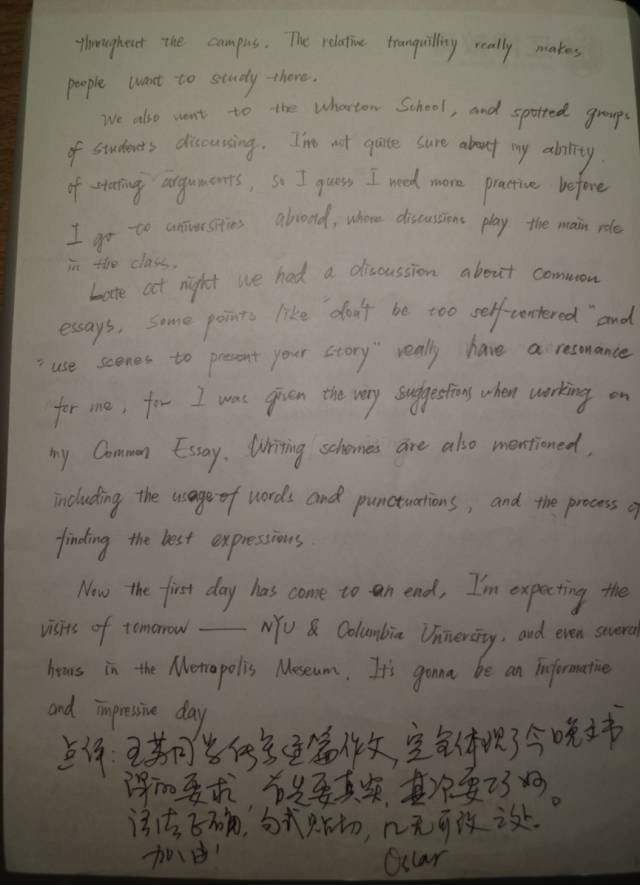 throughout the campus. The relative tranquillity really makes
people want to study there.
We also went to the Wharton School, and spotted groups
of students discussing. I'm not quite sure about my ability
of stating arguments, so I guess I need more practice before
I go to universities abroad, where discussions play the main role
in the class.
Late at night we had a discussion about common
essays. Some points like "don't be too self-centered" and
"use scenes to present your story" really have a resonance
for me, for I was given the very suggestions when working on
my Common Essay. Writing schemes are also mentioned,
including the usage of words and punctuations, and the process of
finding the best expressions.
Now the first day has come to an end, I'm expecting the
visits of tomorrow —— NYU & Columbia Univercity, and even several
hours in the Metropolis Meseum. It's gonna be an informative
and impressive day
点评：王苏同学仿写这篇作文，完全体现了今晚文书
课的要求，首先要真实，其次要巧妙。
语法正确，句式贴切，几无可改之处。
加油！ Oscar